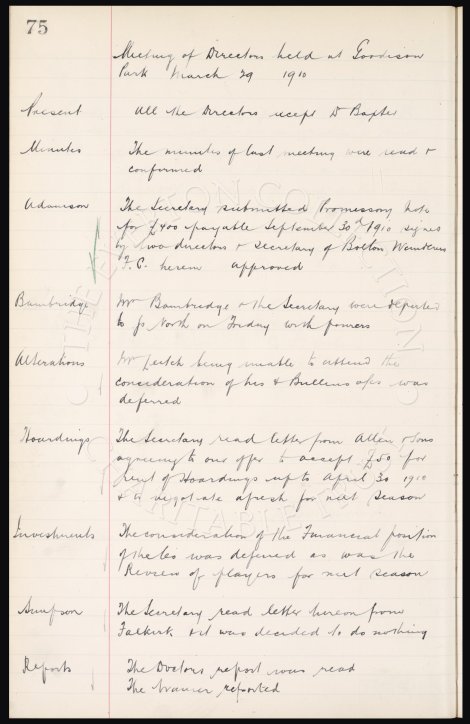 75
Meeting of Directors held at Goodison
Park March 29 1910
Present All the Directors except Dr Baxter
Minutes The minutes of last meeting were read &
confirmed
Adamson The Secretary submitted Promissory Note
for £400 payable September 30th 1910 signed
by two directors & Secretary of Bolton Wanderers
F.C. herein approved
Bambridge Mr Bambridge & the Secretary were deputed
to go North on Friday with powers
Alterations Mr Leitch being unable to attend the
consideration of his & Bullens a/cs was
deferred
Hoardings The Secretary read letter from Allen & Sons
agreeing to our offer to accept £50 for
rent of Hoardings up to April 30 1910
& to negotiate afresh for next season
Investments The consideration of the Financial position
of the Co was deferred as was the
Review of players for next season
Simpson The Secretary read letter hereon from
Falkirk & it was decided to do nothing
Reports The Doctors report was read
The Trainer reported
THE EVERTON COLLECTION
CHARITABLE TRUST